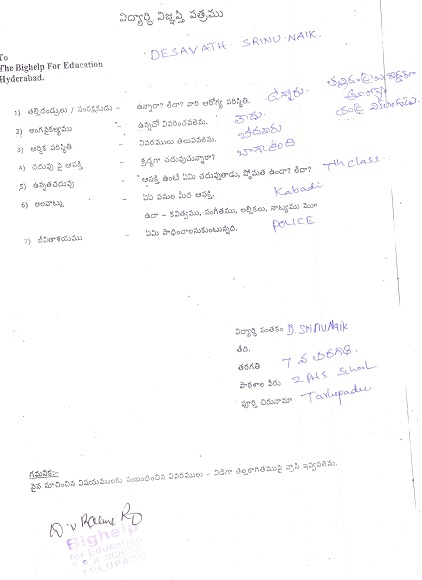 విద్యార్ధి విజ్ఞప్తి పత్రము
DESAVATH SRINU NAIK.
To
The Bighelp For Education
Hyderabad.
1) తల్లిదండ్రులు / సంరక్షకుడు – ఉన్నారా? లేదా? వారి ఆరోగ్య పరిస్థితి. ఉన్నారు.
2) అంగవైకల్యము – ఉన్నచో వివరించవలెను. కాదు
3) ఆర్ధిక పరిస్థితి – వివరములు తెలుపవలెను. బీదవారు
4) చదువు పై ఆసక్తి – శ్రద్ధగా చదువుచున్నారా? బాగుంది
5) ఉన్నతచదువు – ఆసక్తి ఉంటే ఏమి చదువుతాడు, స్తోమత ఉందా? లేదా? 7th class.
6) అలవాట్లు – ఏఏ పనుల మీద ఆసక్తి. Kabadi
ఉదా – కవిత్వము, సంగీతము, అల్లికలు, నాట్యము మొ॥
7) జీవితాశయము – ఏమి సాధించాలనుకుంటున్నది. POLICE
విద్యార్ధి సంతకం D. Srinu Naik
తేది.
తరగతి 7 వ తరగతి.
పాఠశాల పేరు ZPHS School
పూర్తి చిరునామా
గమనిక:-
పైన సూచించిన విషయములకు సంబంధించిన వివరములు – విడిగా తెల్లకాగితముపై వ్రాసి ఇవ్వవలెను.
Bighelp
for Education